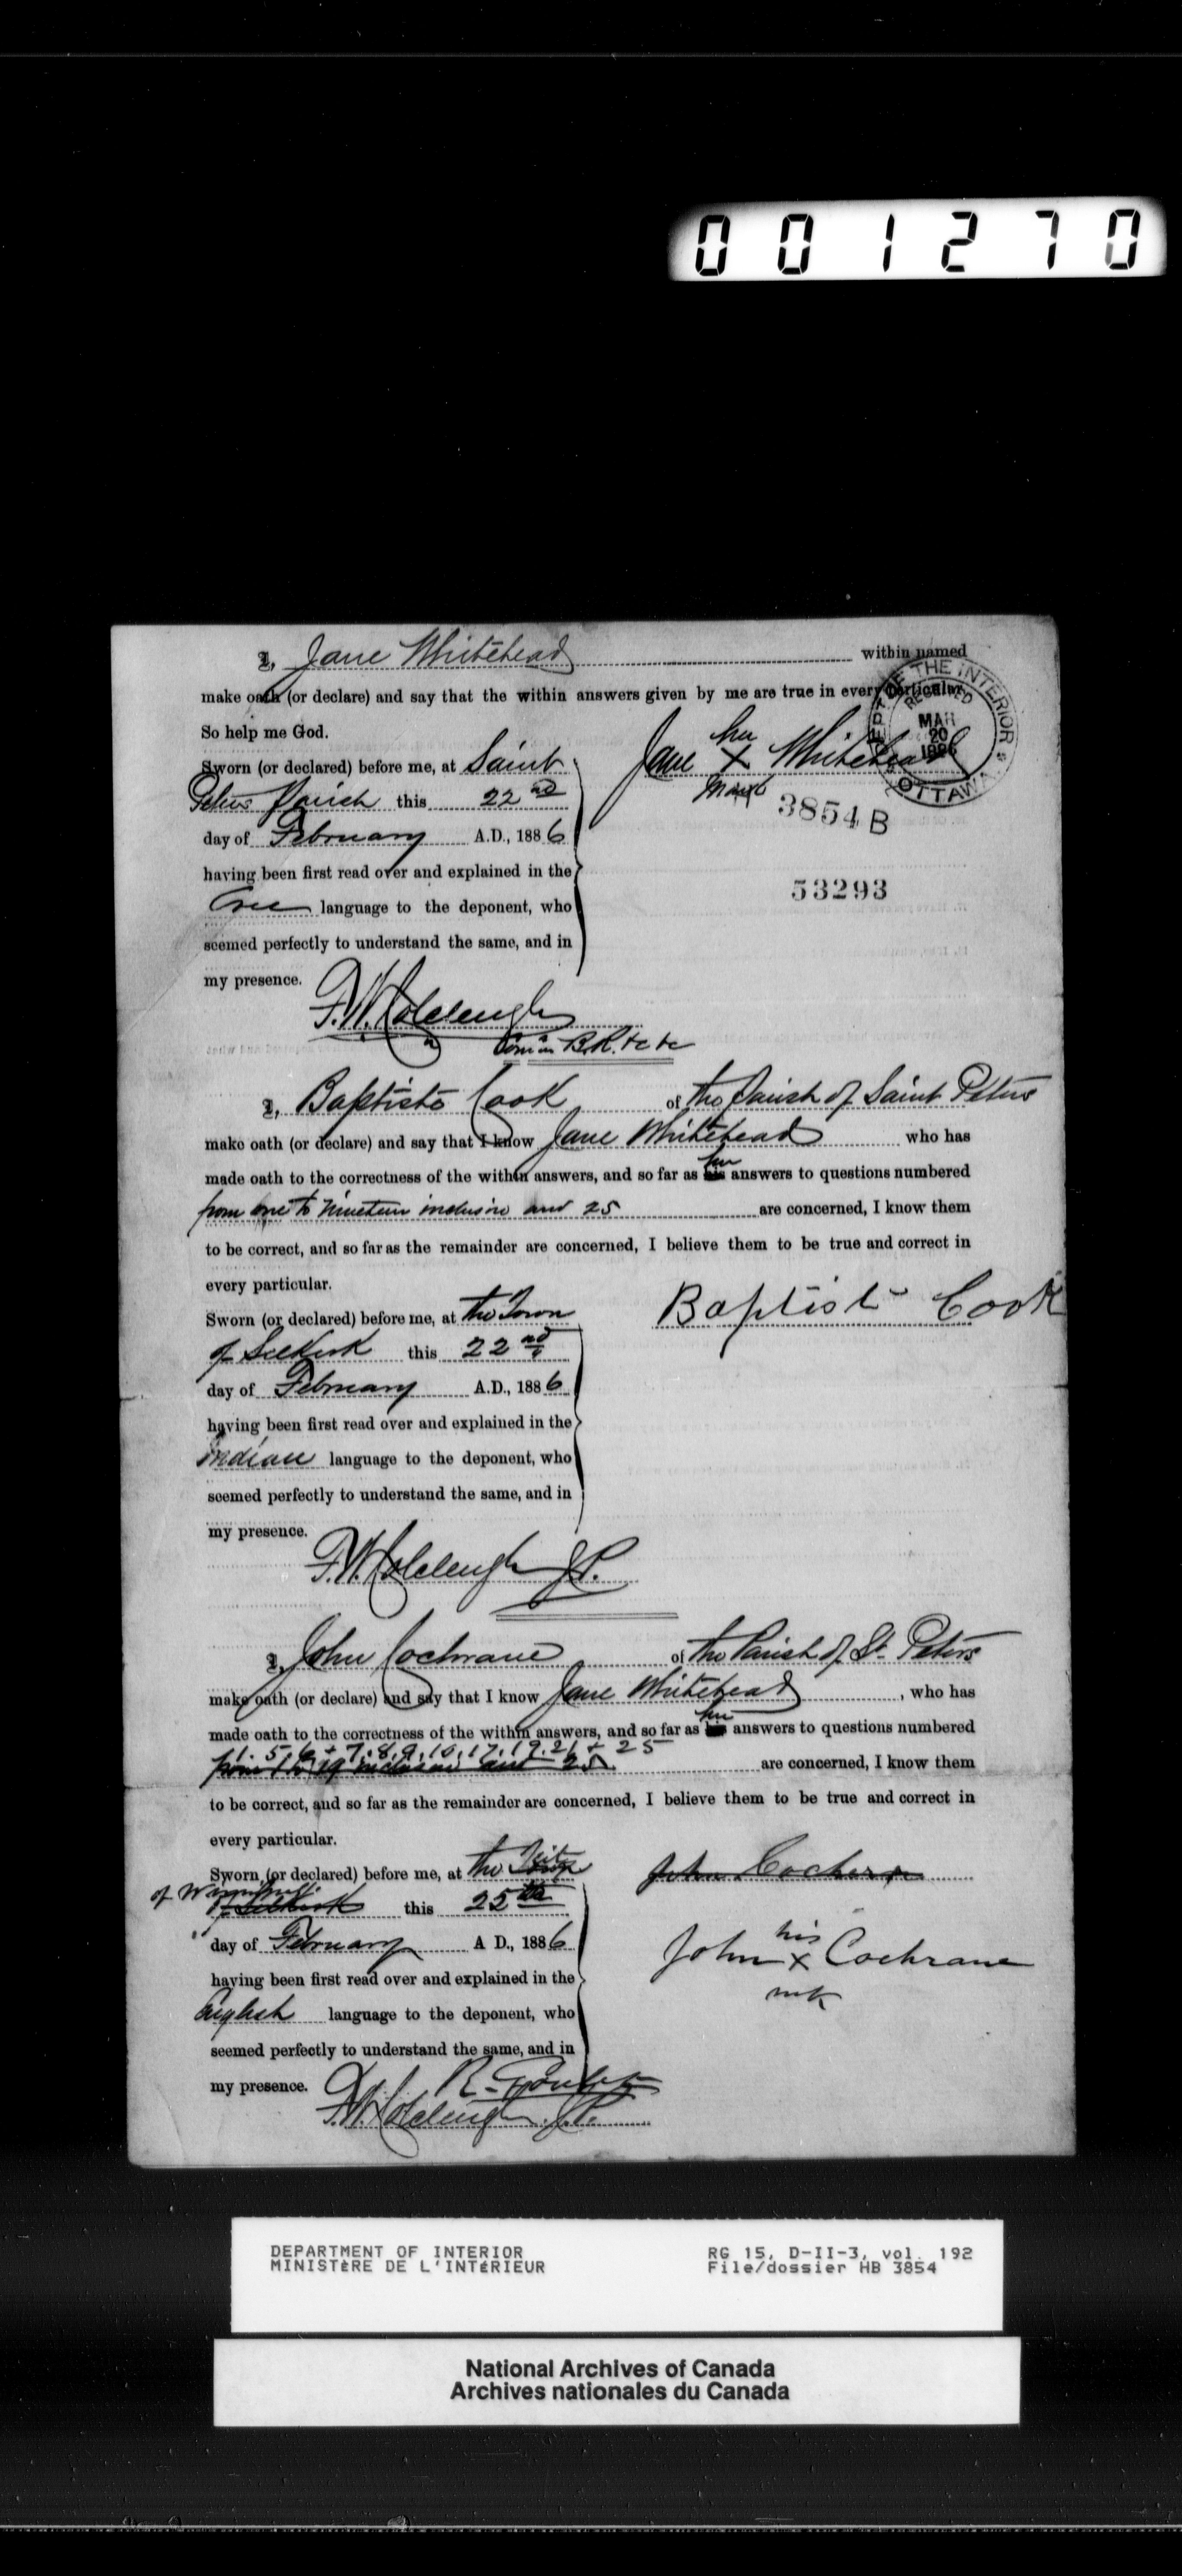 001270
I, Jane Whitehead within named
make oath (or declare) and say that the within answers given by me are true in every particular
So help me God.
DEPT. OF THE INTERIOR
RECEIVED
MAR
20
1886
OTTAWA
Sworn (or declared) before me, at Saint
Peters Parish this 22nd
day of February A.D., 1886
having been first read over and explained in the
Cree language to the deponent, who
seemed perfectly to understand the same, and in
my presence.
her
Jane X Whitehead
mark
3854 B
53293
F.W. Colcleugh
Comr in B.R. &c &c
I, Baptiste Cook of the Parish of Saint Peters
make oath (or declare) and say that I know Jane Whitehead who has
made oath to the correctness of the within answers, and so far as his her answers to questions numbered
from one to nineteen inclusive and 25 are concerned, I know them
to be correct, and so far as the remainder are concerned, I believe them to be true and correct in
every particular.
Sworn (or declared) before me, at the Town
of Selkirk this 22nd
day of February A.D., 1886
having been first read over and explained in the
Indian language to the deponent, who
seemed perfectly to understand the same, and in
my presence.
Baptist Cook
F.W. Colcleugh J.P.
I, John Cochrane of the Parish of St. Peters
make oath (or declare) and say that I know Jane Whitehead, who has
made oath to the correctness of the within answers, and so far as her answers to questions numbered
1. 5. 6 + 7. 8. 9. 10. 17. 19. 21 + 25
from 1 to 19 inclusive and 25 are concerned, I know them
to be correct, and so far as the remainder are concerned, I believe them to be true and correct in
every particular.
Sworn (or declared) before me, at the City
of Winnipeg
of Selkirk this 25th
day of February A D., 1886
having been first read over and explained in the
English language to the deponent, who
seemed perfectly to understand the same, and in
my presence.
John
his
John X Cochrane
mk
R. Goulet
F.W. Colcleugh J.P.
DEPARTMENT OF INTERIOR
MINISTÈRE DE L'INTÉRIEUR
RG 15, D-II-3, vol. 192
File/dossier HB 3854
National Archives of Canada
Archives nationales du Canada